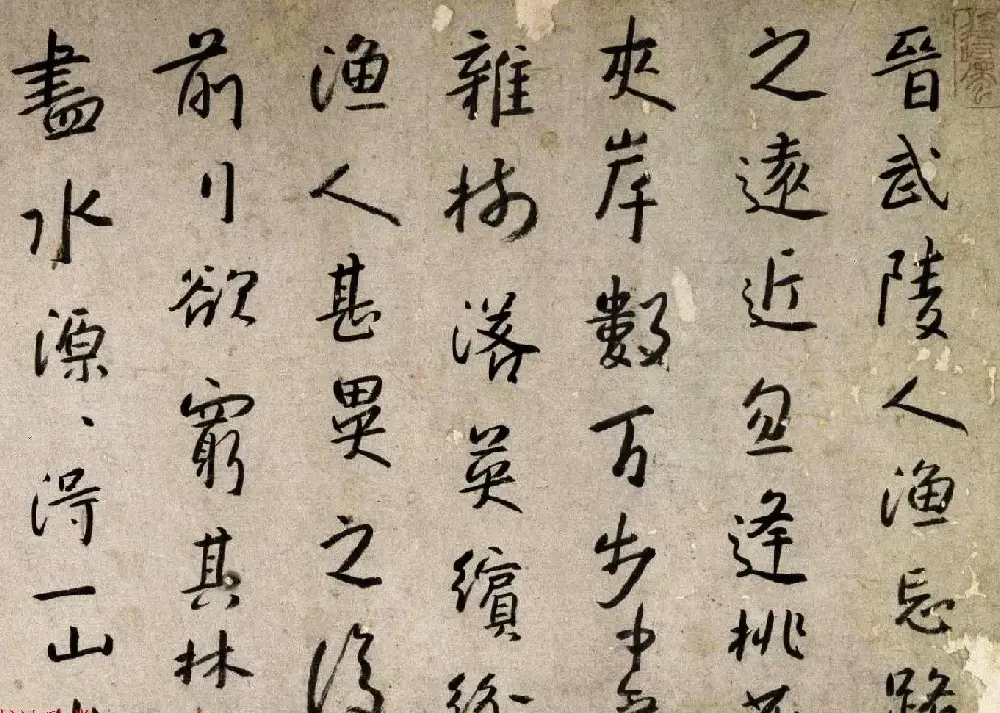 晉武陵人漁忘路
之遠近忽逢桃
夾岸數百步中
雜樹落英繽紛
漁人甚異之復
前行欲窮其林
盡水源、得一山